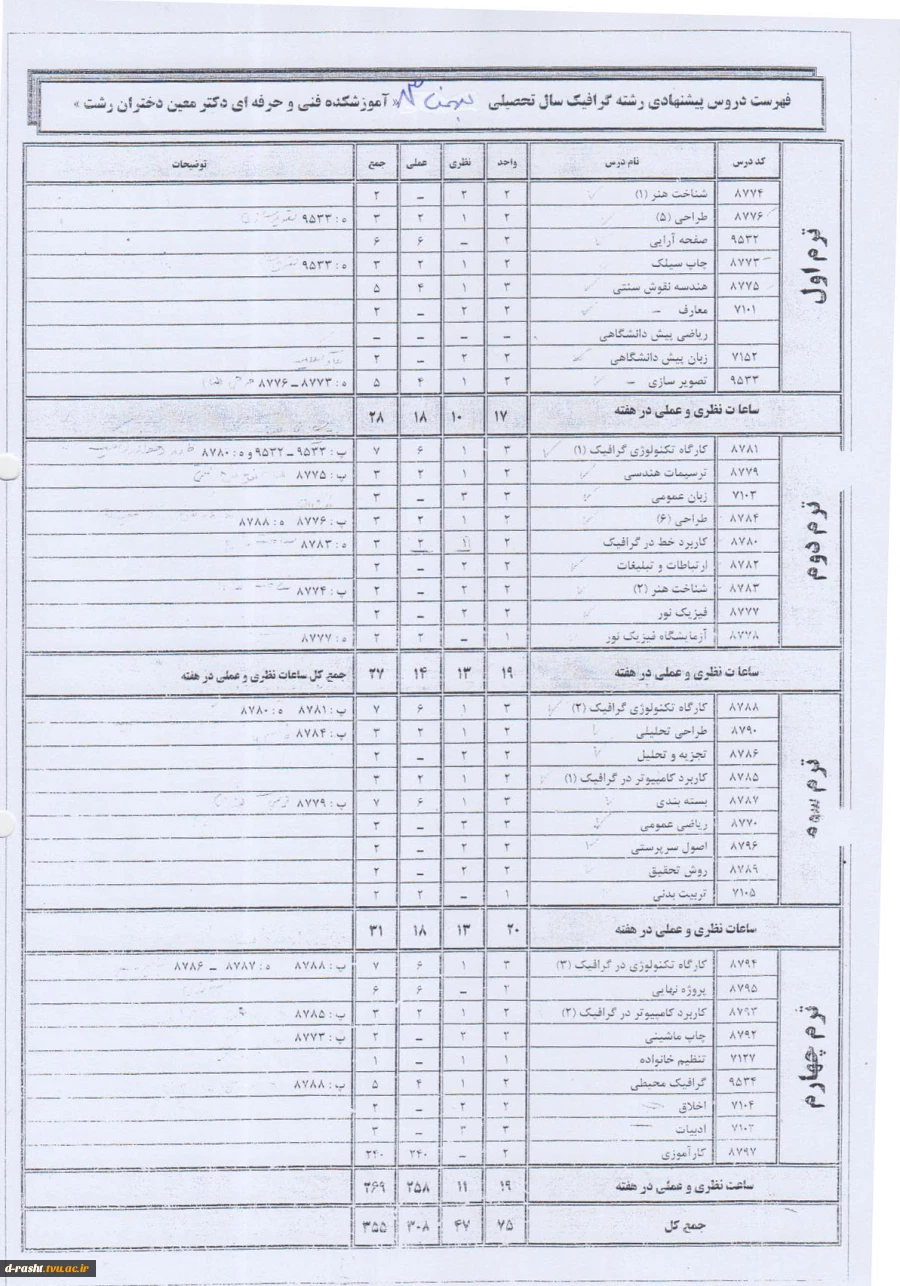 فهرست دروس پیشنهادی رشته گرافیک سال تحصیلی « آموزشکده فنی و حرفه ای دکتر معین دختران رشت »
کد درس نام درس واحد نظری عملی جمع توضیحات
ترم اول
۸۷۷۴ شناخت هنر (۱) ۲ ۲ ـ ۲
۸۷۷۶ طراحی (۵) ۲ ۱ ۲ ۳ ه : ۹۵۳۳
۹۵۳۲ صفحه آرایی ۲ ـ ۶ ۶
۸۷۷۳ چاپ سیلک ۲ ۱ ۲ ۳ ه : ۹۵۳۳
۸۷۷۵ هندسه نقوش سنتی ۳ ۱ ۴ ۵
۷۱۰۱ معارف ۲ ۲ ـ ۲
ریاضی پیش دانشگاهی ـ ـ ـ ـ
۷۱۵۲ زبان پیش دانشگاهی ۲ ۲ ـ ۲
۹۵۳۳ تصویر سازی ۲ ۱ ۴ ۵ ه : ۸۷۷۳ ـ ۸۷۷۶
ساعات نظری و عملی در هفته ۱۷ ۱۰ ۱۸ ۲۸
ترم دوم
۸۷۸۱ کارگاه تکنولوژی گرافیک (۱) ۳ ۱ ۶ ۷ پ : ۹۵۳۳ ـ ۹۵۳۲ و ه : ۸۷۸۰
۸۷۷۹ ترسیمات هندسی ۲ ۱ ۲ ۳ پ : ۸۷۷۵
۷۱۰۳ زبان عمومی ۳ ۳ ـ ۳
۸۷۸۴ طراحی (۶) ۲ ۱ ۲ ۳ پ : ۸۷۷۶ ه : ۸۷۸۸
۸۷۸۰ کاربرد خط در گرافیک ۲ ۱ ۲ ۳ ه : ۸۷۸۳
۸۷۸۲ ارتباطات و تبلیغات ۲ ۲ ـ ۲
۸۷۸۳ شناخت هنر (۲) ۲ ۲ ـ ۲ پ : ۸۷۷۴
۸۷۷۷ فیزیک نور ۲ ۲ ـ ۲
۸۷۷۸ آزمایشگاه فیزیک نور ۱ ـ ۲ ۲ ه : ۸۷۷۷
ساعات نظری و عملی در هفته ۱۹ ۱۳ ۱۴ ۲۷ جمع کل ساعات نظری و عملی در هفته
ترم سوم
۸۷۸۸ کارگاه تکنولوژی گرافیک (۲) ۳ ۱ ۶ ۷ پ : ۸۷۸۱ ه : ۸۷۸۰
۸۷۹۰ طراحی تحلیلی ۲ ۱ ۲ ۳ پ : ۸۷۸۴
۸۷۸۶ تجزیه و تحلیل ۲ ۲ ـ ۲
۸۷۸۵ کاربرد کامپیوتر در گرافیک (۱) ۲ ۱ ۲ ۳
۸۷۸۷ بسته بندی ۳ ۱ ۶ ۷ پ : ۸۷۷۹
۸۷۷۰ ریاضی عمومی ۳ ۳ ـ ۳
۸۷۹۶ اصول سرپرستی ۲ ۲ ـ ۲
۸۷۸۹ روش تحقیق ۲ ۲ ـ ۲
۷۱۰۵ تربیت بدنی ۱ ـ ۲ ۲
ساعات نظری و عملی در هفته ۲۰ ۱۳ ۱۸ ۳۱
ترم چهارم
۸۷۹۴ کارگاه تکنولوژی در گرافیک (۳) ۳ ۱ ۶ ۷ پ : ۸۷۸۸ ه : ۸۷۸۷ ـ ۸۷۸۶
۸۷۹۵ پروژه نهایی ۲ ـ ۶ ۶
۸۷۹۳ کاربرد کامپیوتر در گرافیک (۲) ۲ ۱ ۲ ۳ پ : ۸۷۸۵
۸۷۹۲ چاپ ماشینی ۲ ۲ ـ ۲ پ : ۸۷۷۳
۷۱۲۷ تنظیم خانواده ۱ ۱ ـ ۱
۹۵۳۴ گرافیک محیطی ۲ ۱ ۴ ۵ پ : ۸۷۸۸
۷۱۰۴ اخلاق ۲ ۲ ـ ۲
۷۱۰۲ ادبیات ۳ ۳ ـ ۳
۸۷۹۷ کارآموزی ۲ ـ ۲۴۰ ۲۴۰
ساعت نظری و عملی در هفته ۱۹ ۱۱ ۲۵۸ ۲۶۹
جمع کل ۷۵ ۴۷ ۳۰۸ ۳۵۵
d-rasht.tvu.ac.ir